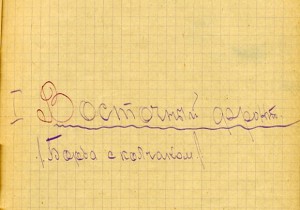 I Восточный фронт.
(Борьба с колчаком)